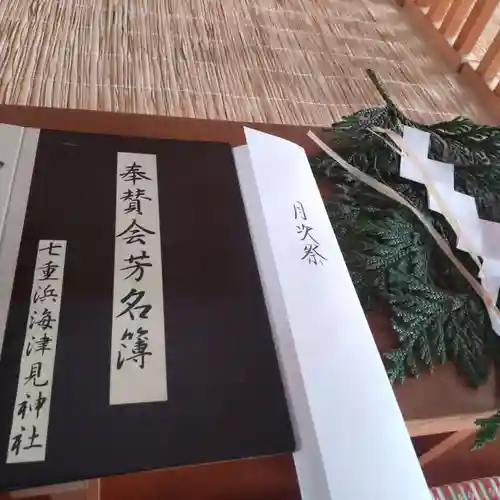 奉賛会芳名簿
七重浜海津見神社
月次祭